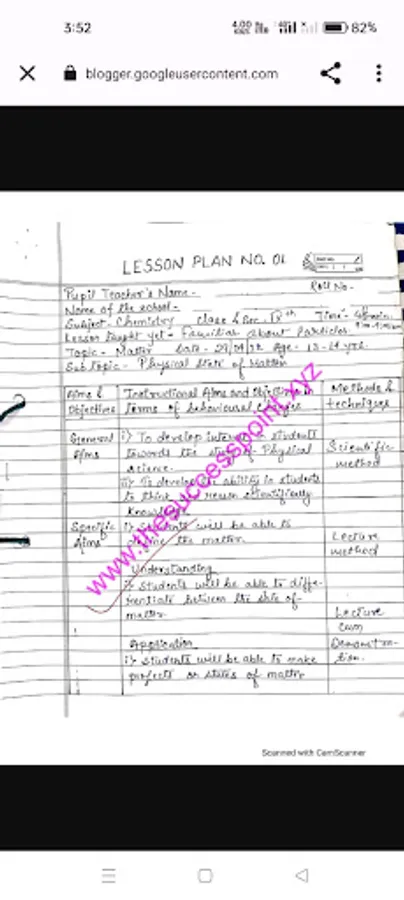 3:52
4.00 KB/s 4G 82%
blogger.googleusercontent.com
LESSON PLAN NO. 01
Pupil Teacher's Name - Roll No -
Name of the school -
Subject - Chemistry Class & Sec. IXth Time - 45 min.
Lesson taught yet - Familiar about Particles.
Topic - Matter Date - Age - 13-14 yrs.
Sub topic - Physical state of Matter
Aims & Objectives Instructional Aims and Objectives in terms of behavioural Changes Methods & techniques
General Aims i) To develop interest students towards the study of Physical science. Scientific method
ii) To develop ability in students to think & reason scientifically
Knowledge
Specific Aims i) Students will be able to define the matter. Lecture method
Understanding
i) Students will be able to diffe-
rentiate between the state of
matter. Lecture
cum
Application Demonstra-
i) Students will be able to make tion.
projects on states of matter
www.thesuccesspoint.xyz
Scanned with CamScanner